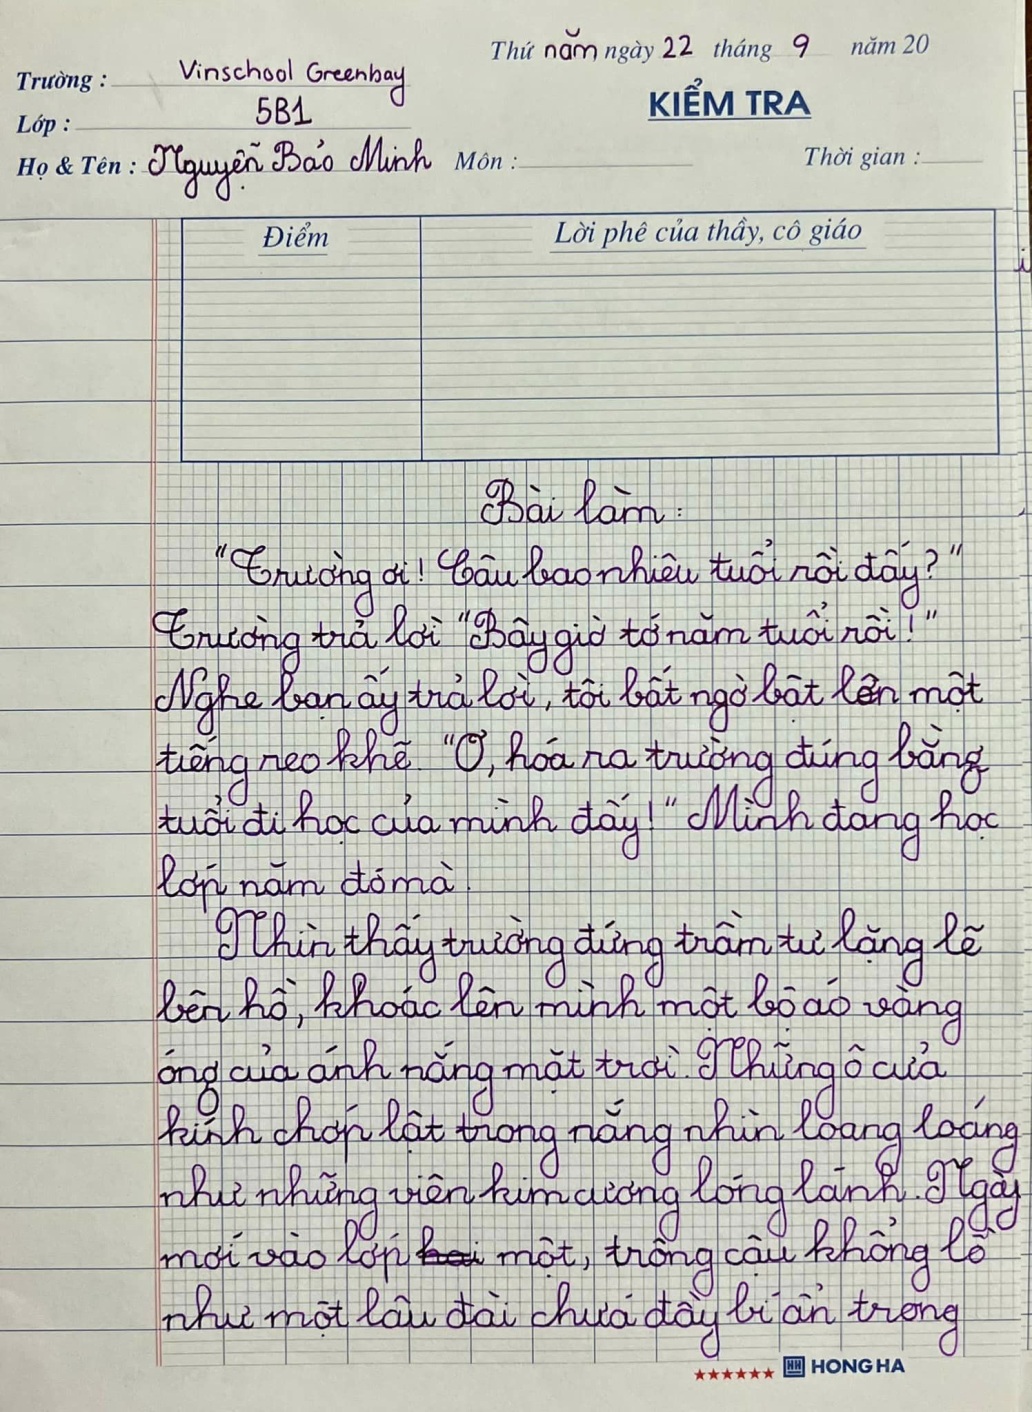 Thứ năm ngày 22 tháng 9 năm 20
Trường : Vinschool Greenbay
KIỂM TRA
Lớp : 5B1
Họ & Tên : Nguyễn Bảo Minh Môn : Thời gian :
Điểm
Lời phê của thầy, cô giáo
Bài làm:
"Trường ơi! Cậu bao nhiêu tuổi rồi đấy?"
Trường trả lời "Bây giờ tớ năm tuổi rồi!"
Nghe bạn ấy trả lời, tôi bất ngờ bật lên một
tiếng reo khẽ "Ơ, hóa ra trường đúng bằng
tuổi đi học của mình đấy!" Mình đang học
lớp năm đó mà.
Nhìn thấy trường đứng trầm tư lặng lẽ
bên hồ, khoác lên mình một bộ áo vàng
óng của ánh nắng mặt trời. Những ô cửa
kính chớp lật trong nắng nhìn loang loáng
như những viên kim cương lóng lánh. Ngày
mới vào lớp một, trông cậu khổng lồ
như một lâu đài chứa đầy bí ẩn trong
HONG HA